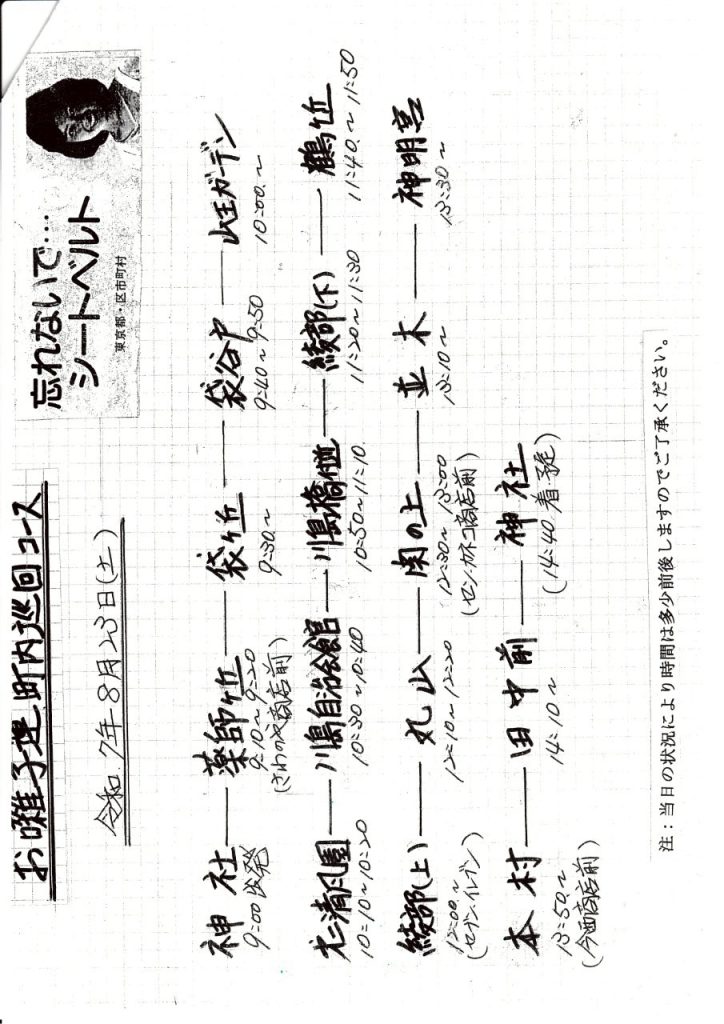 お囃子連町内巡回コース
忘れないで…
シートベルト
東京都・区市町村
令和7年8月23日(土)
神社 ― 薬師ヶ丘 ― 袋ヶ丘 ― 袋谷戸 ― 山王ガーデン
9:00出発 9:10~9:20 9:30~ 9:40~9:50 10:00~
(さわのや商店前)
清風園 ― 川島自治会館 ― 川島橋付近 ― 綾部(下) ― 鶴ヶ丘
10:10~10:20 10:30~10:40 10:50~11:10 11:20~11:30 11:40~11:50
綾部(上) ― 丸山 ― 関の上 ― 並木 ― 神明宮
12:00~ 12:10~12:20 12:30~13:00 13:10~ 13:30~
(セブンイレブン) (セン・カネコ商店前)
本村 ― 田中前 ― 神社
13:50~ 14:10~ (14:40着予定)
(今西商店前)
注:当日の状況により時間は多少前後しますのでご了承ください。